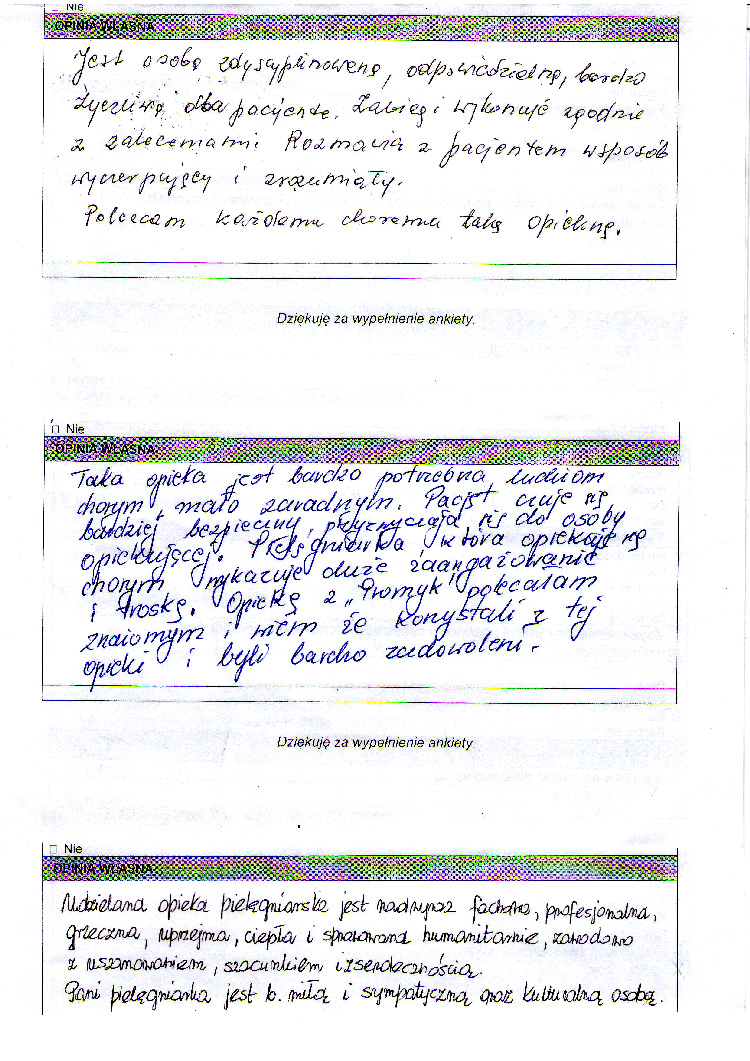 □ Nie
OPINIA WŁASNA
Jest osobą zdyscyplinowaną, odpowiedzialną, bardzo
życzliwą dba pacjenta. Zabiegi wykonuje zgodnie
z zaleceniami. Rozmawia z pacjentem wsposób
wyczerpujący i zrozumiały.
Polecam każdemu choremu taką opiekunę.
Dziękuję za wypełnienie ankiety.
□ Nie
OPINIA WŁASNA
Taka opieka jest bardzo potrzebna ludziom
chorym, mało zaradnym. Pacjet czuje się
bardziej bezpieczny, przyzwyczaja się do osoby
opiekującej. Pielęgniarka która opiekuje się
chorym, wykazuje duże zaangażowanie
i troskę. Opiekę z „Promyk" polecałam
znajomym i wiem że korzystali z tej
opieki i byli bardzo zadowoleni.
Dziękuję za wypełnienie ankiety.
□ Nie
OPINIA WŁASNA
Udzielana opieka pielęgniarska jest nadzwyczaj fachowa, profesjonalna,
grzeczna, uprzejma, ciepła i sprawowana humanitarnie, zawodowo
z uszanowaniem, szacunkiem i z serdecznością.
Pani pielęgniarka jest b. miłą i sympatyczną oraz kulturalną osobą.